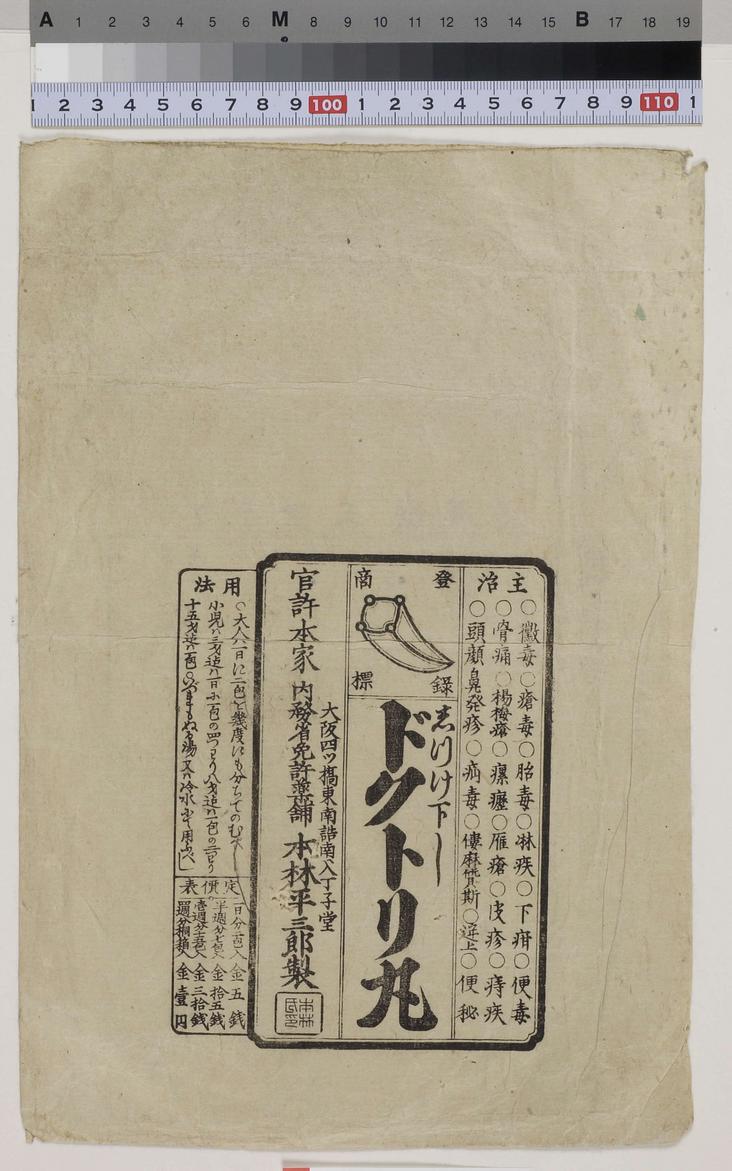 A 1 2 3 4 5 6 M 8 9 10 11 12 13 14 15 B 17 18 19
1 2 3 4 5 6 7 8 9 100 1 2 3 4 5 6 7 8 9 110 1
主治
○黴毒○瘡毒○胎毒○淋疾○下疳○便毒
○骨痛○楊梅瘡○瘰癧○雁瘡○皮疹○痔疾
○頭顔鼻発疹○病毒○僂麻質斯○逆上○便秘
登録
商標
志つけ下し
ドクトリ丸
大阪四ツ橋東南詰南入丁子堂
官許本家 内務省免許薬舗 本林平三郎製
本林氏印
用法
○大人ハ一日に二包を幾度にも分ちてのむべし
小児ハ三才迄ハ一日に一包の四つわり八才迄ハ一包の二つわり
十五才迄ハ一包○いづれもぬる湯又ハ冷水にて用ふべし
定價表
一日分二包入 金五銭
半週分七包入 金拾五銭
壱週分十五包入 金三拾銭
金壹円